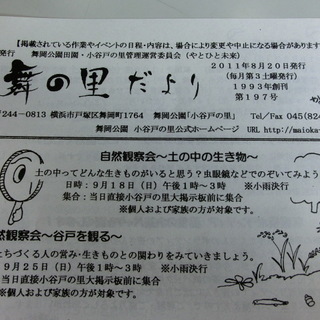 【掲載されている作業やイベントの日程・内容は、場合により変更や中止になる場合があります
発行
舞岡公園田園・小谷戸の里管理運営委員会(やとひと未来)
2011年8月20日発行
(毎月第3土曜発行)
1993年創刊
第197号
舞の里だより
244-0813 横浜市戸塚区舞岡町1764 舞岡公園「小谷戸の里」 Tel/Fax 045(824
舞岡公園 小谷戸の里公式ホームページ URL http://maioka-
自然観察会~土の中の生き物~
土の中ってどんな生きものがいると思う?虫眼鏡などでのぞいてみよう
日時:9月18日(日)午後1時~3時 ※小雨決行
集合:当日直接小谷戸の里大掲示板前に集合
※個人および家族の方が対象です。
然観察会~谷戸を観る~
とちづくる人の営み・生きものとの関わりをみていきましょう。
9月25日(日)午後1時~3時 ※小雨決行
当日直接小谷戸の里大掲示板前に集合
※個人および家族の方が対象です。